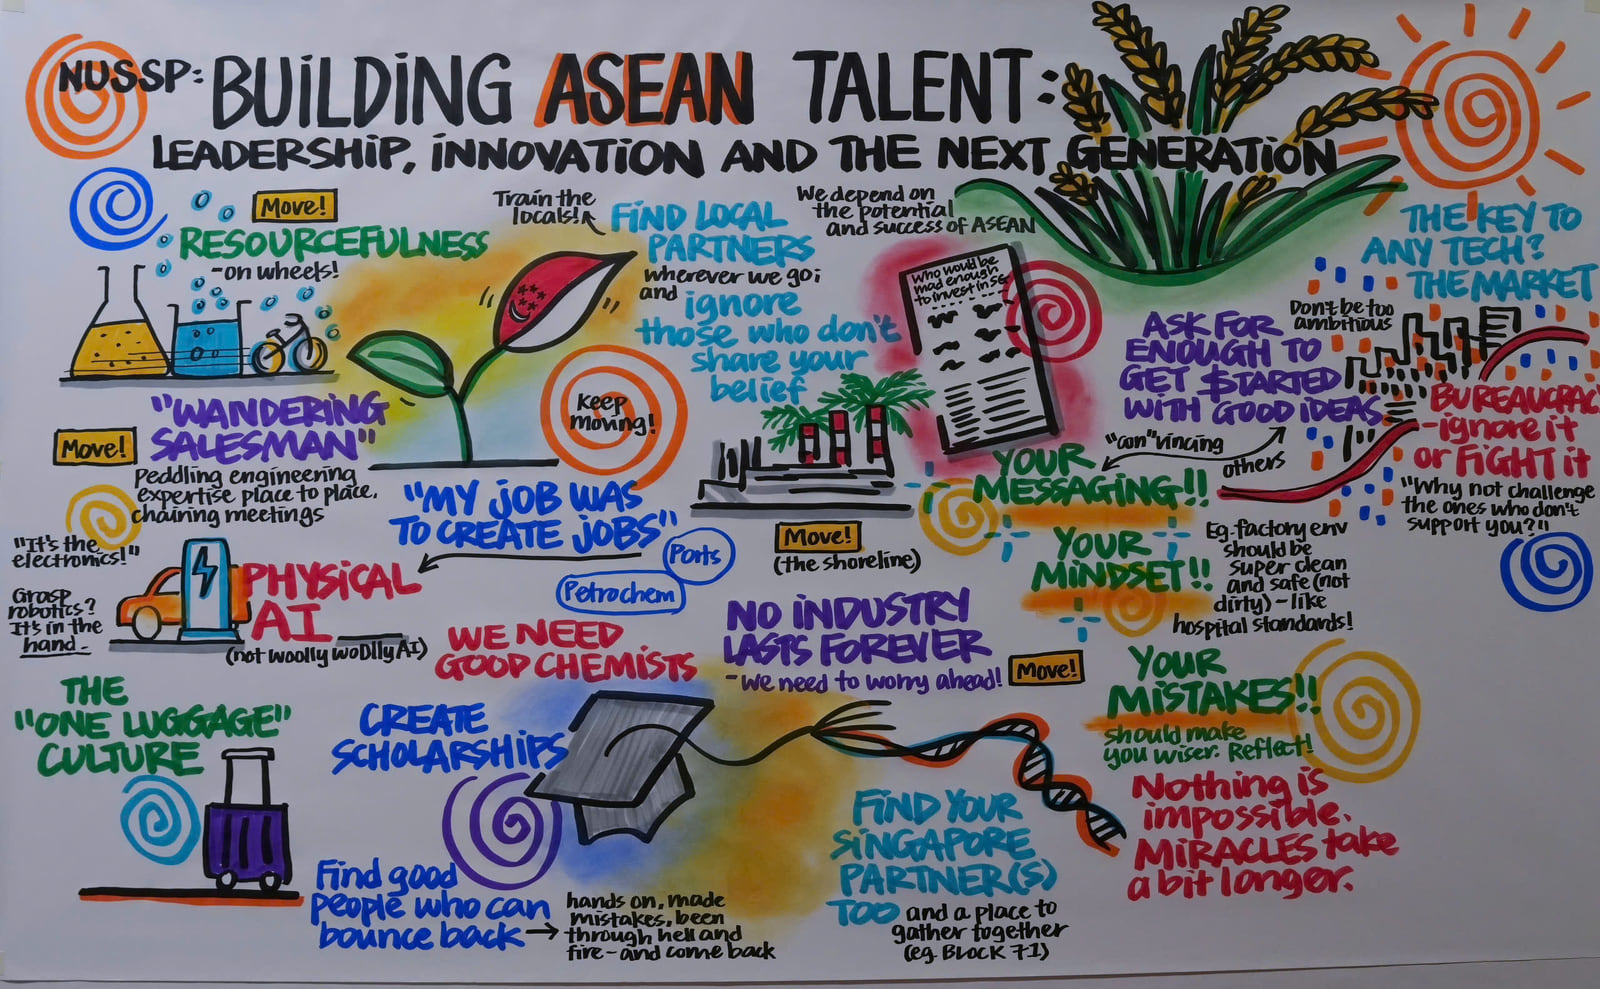 NUSSP: BUILDING ASEAN TALENT:
LEADERSHIP, INNOVATION AND THE NEXT GENERATION
Move!
RESOURCEFULNESS
- on wheels!
Train the
locals!
FIND LOCAL
PARTNERS
wherever we go;
and ignore
those who don't
share your
belief
We depend on
the potential
and success of ASEAN
Who would be
mad enough
to invest in SG
THE KEY TO
ANY TECH?
THE MARKET
Don't be too
ambitious
ASK FOR
ENOUGH TO
GET $TARTED
WITH GOOD IDEAS
BUREAUCRAC
- ignore it
or FIGHT it
"Why not challenge
the ones who don't
support you?"
"con"vincing
others
"WANDERING
SALESMAN"
Move!
Peddling engineering
expertise place to place,
chairing meetings
Keep
moving!
"MY JOB WAS
TO CREATE JOBS"
Ports
Petrochem
Move!
(the shoreline)
YOUR
MESSAGING!!
YOUR
MINDSET!!
Eg. factory env
should be
super clean
and safe (not
dirty) - like
hospital standards!
"It's the
electronics!"
Grasp
robotics?
It's in the
hand.
PHYSICAL
AI
(not woolly woolly AI)
WE NEED
GOOD CHEMISTS
NO INDUSTRY
LASTS FOREVER
- we need to worry ahead!
Move!
YOUR
MISTAKES!!
should make
you wiser. Reflect!
THE
"ONE LUGGAGE"
CULTURE
CREATE
SCHOLARSHIPS
Find good
people who can
bounce back
hands on, made
mistakes, been
through hell and
fire - and come back
FIND YOUR
SINGAPORE
PARTNER(S)
TOO and a place to
gather together
(eg. BLOCK 71)
Nothing is
impossible.
MIRACLES take
a bit longer.